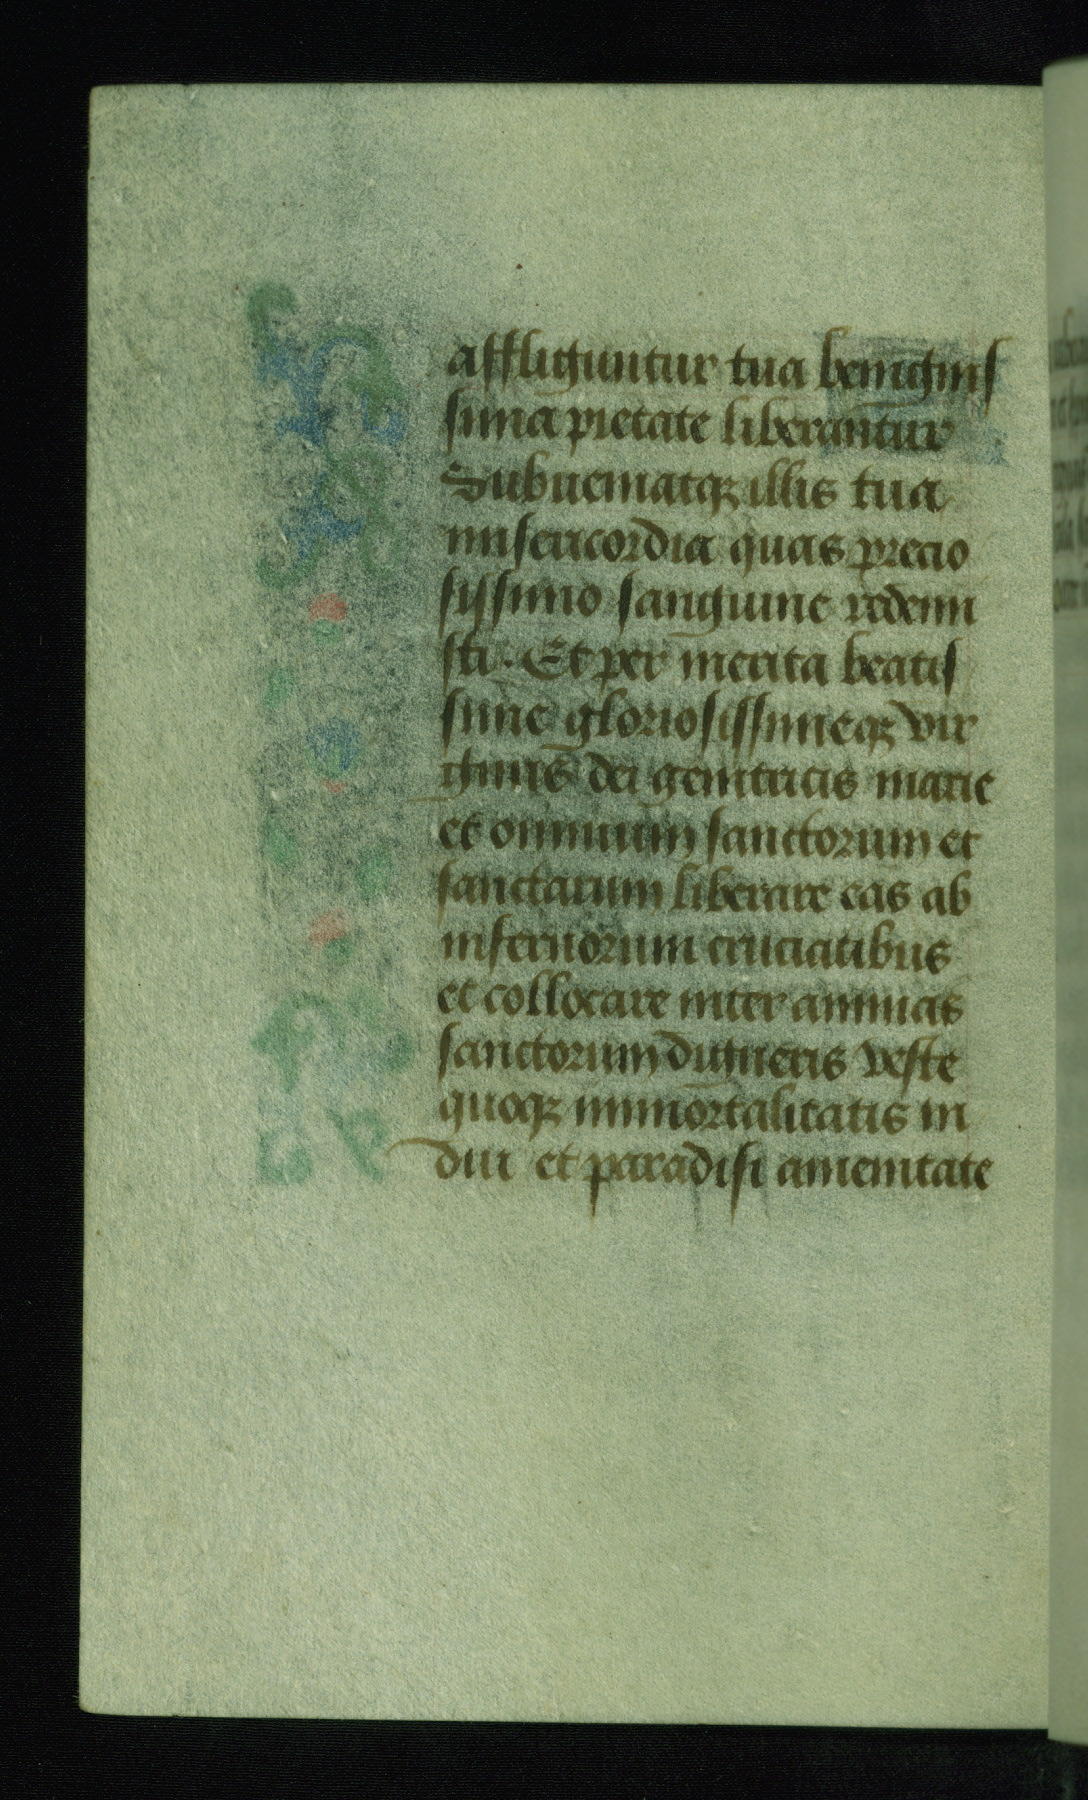 affliguntur tua benignis
sima pietate liberantur
Subueniatqꝫ illis tua
misericordia quas precio
sissimo sanguine redemi
sti. Et per merita beatis
sime gloriosissimeqꝫ vir
ginis dei genitricis marie
et omnium sanctorum et
sanctarum liberare eas ab
infernorum cruciatibus
et collocare inter animas
sanctorum digneris veste
quoqꝫ immortalitatis in
dui et paradisi amenitate